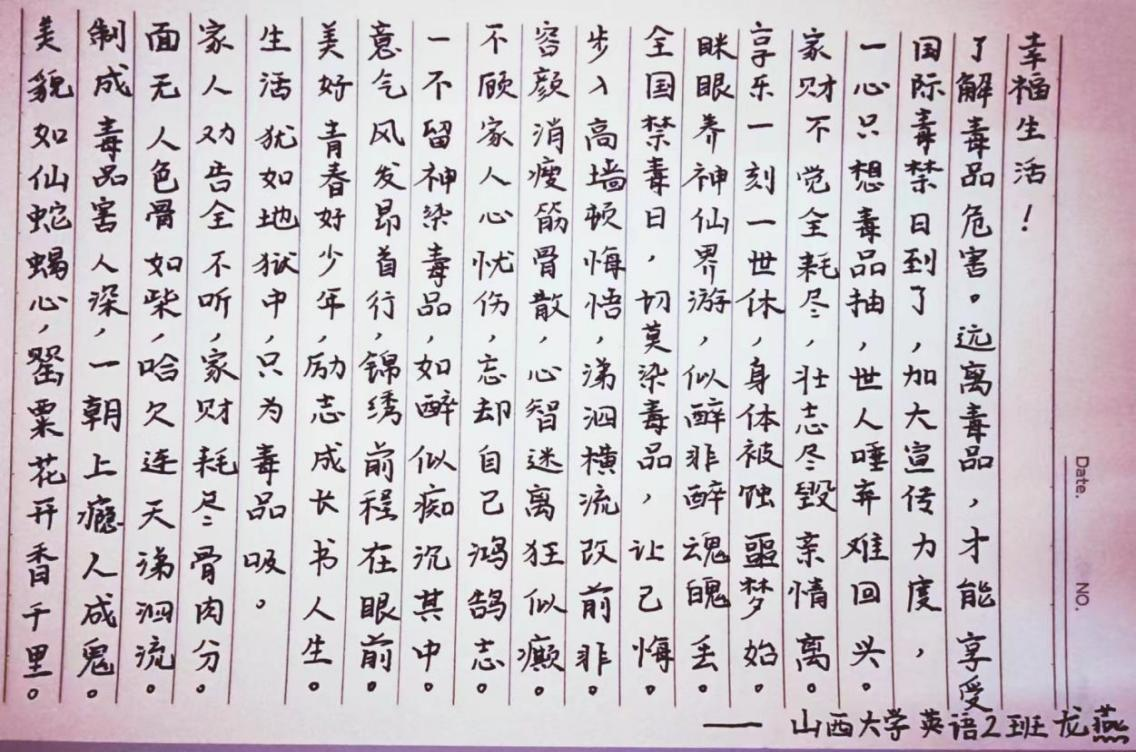 美貌如仙蛇蝎心,罂粟花开香千里。
制成毒品害人深,一朝上瘾人成鬼。
面无人色骨如柴,哈欠连天涕泗流。
家人劝告全不听,家财耗尽骨肉分。
生活犹如地狱中,只为毒品吸。
美好青春好少年,励志成长书人生。
意气风发昂首行,锦绣前程在眼前。
一不留神染毒品,如醉似痴沉其中。
不顾家人心忧伤,忘却自己鸿鹄志。
容颜消瘦筋骨散,心智迷离狂似癫。
步入高墙顿悔悟,涕泗横流改前非。
全国禁毒日,切莫染毒品,让己悔。
眯眼养神仙界游,似醉非醉魂魄丢。
享乐一刻一世休,身体被蚀噩梦始。
家财不觉全耗尽,壮志尽毁亲情离。
一心只想毒品抽,世人唾弃难回兴。
国际毒禁日到了,加大宣传力度,
了解毒品危害。远离毒品,才能享受
幸福生活!
—— 山西大学英语2班龙燕
Date. NO.